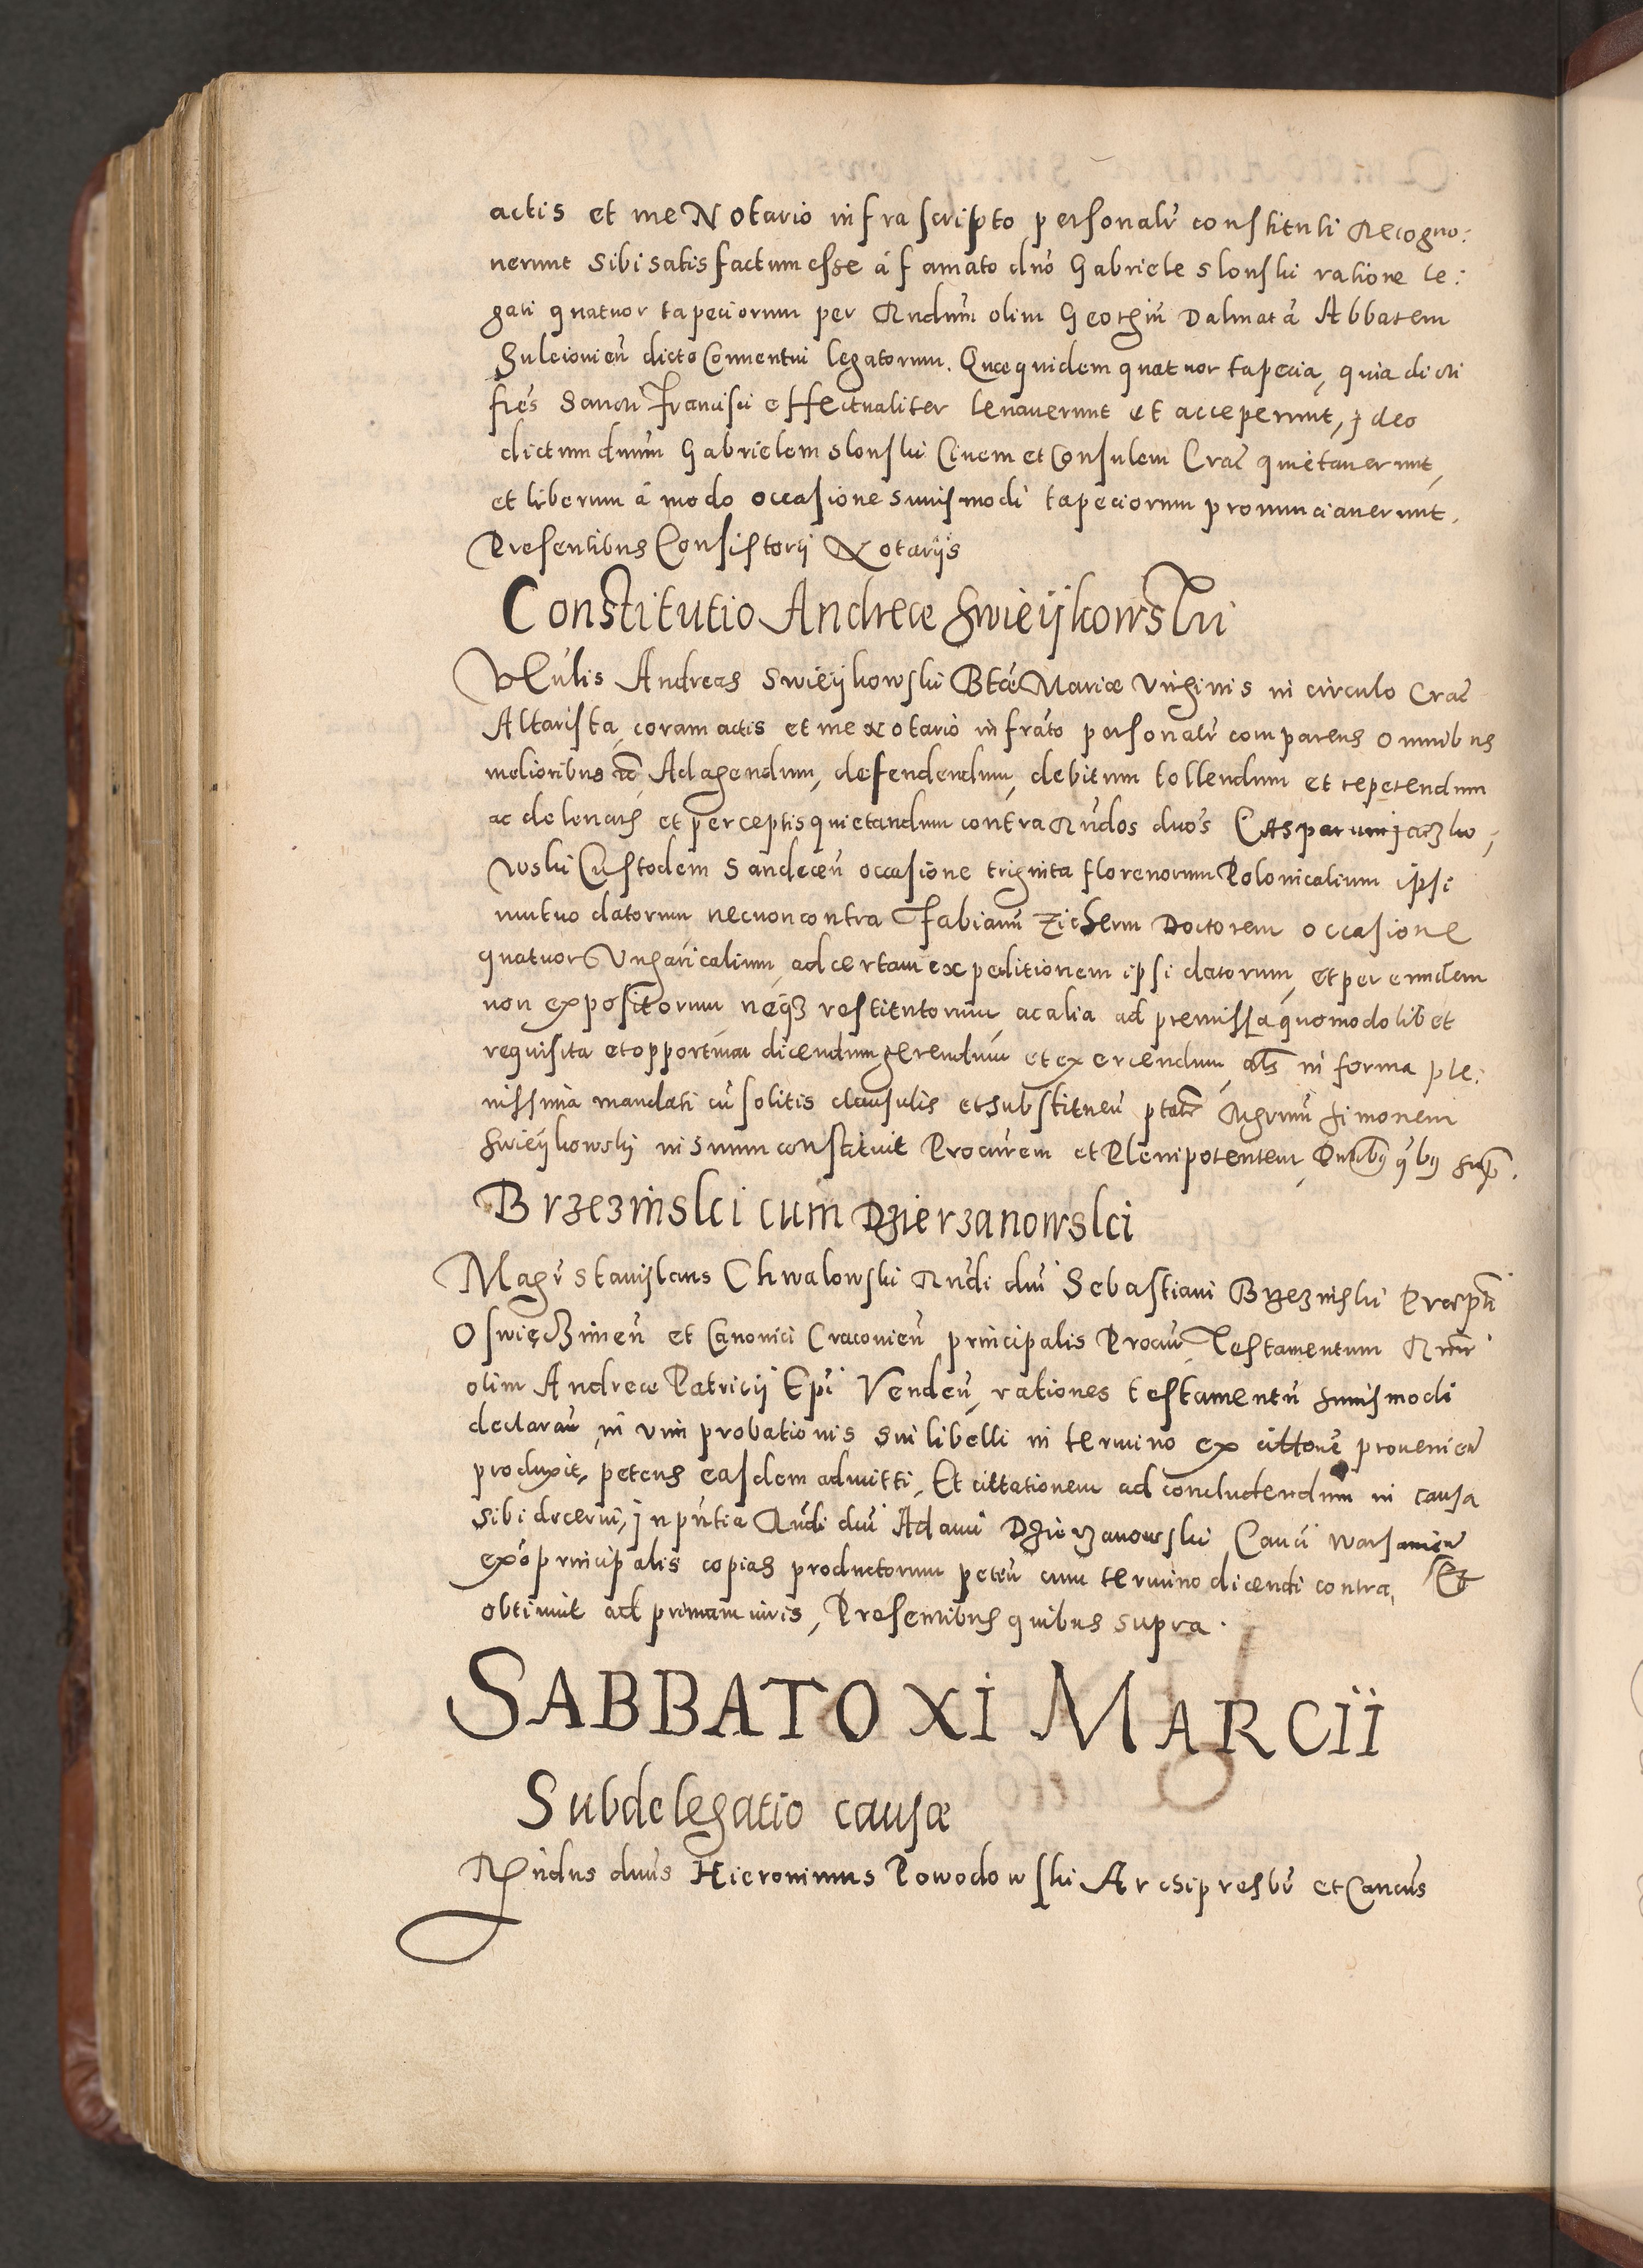 actis et me Notario infrascripto personalr constituti Recogno:
nerunt sibi satisfactum esse à famato dno Gabriele Slonski ratione le:
gati quatuor tapeciorum per Rndum olim Georgiu Dalmatã Abbatem
Suleiouien dicto Conuentui legatorum. Quæ quidem quatuor tapecia, quia dicti
fres Sancti Francisci effectualiter leuauerunt et acceperunt, jdeo
dictum dnum Gabrielem Slonski Ciuem et Consulem Crac quietauerunt,
et liberum à modo occasione huiusmodi tapeciorum pronunciauerunt.
Presentibus Consistorij Notarijs
Constitutio Andreæ Swieijkowski
VEnlis Andreas Swieijkowski Btæ Mariæ Virginis in circulo Crac
Altarista, coram actis et me Notario infrato personalr comparens omnibus
melioribus &c Ad agendum, defendendum, debitum tollendum et repetendum
ac de leuatis et perceptis quietandum contra Rndos dnos Casparum jaczko:
wski Custodem Sandecen occasione triginta florenorum Polonicalium ipsi
mutuo datorum necnon contra Fabianu Doctorem occasione
quatuor Vngaricalium, ad certam expeditionem ipsi datorum, et per eundem
non expositorum neqz restitutorum, ac alia ad premissa quomodolibet
requisita et opportuna dicendum gerendum et exercendum als in forma ple:
nissima mandati cu solitis clausulis et substituen ptate Simonem
Swieijkowskij in suum constituit Procurem et Plenipotentem, Pntibus qbus sup.
Brzezinski cum Dzierzanowski
Magr Stanislaus Chwalowski Rndi dni Sebastiani Brzezinski Præpti
Oswięczimen et Canonici Cracouien principalis Procur, Testamentum Rmi
olim Andreæ Patricij Epi Venden, rationes testamentu huiusmodi
declaran, in vim probationis sui libelli in termino ex cittone prouenien
produxit, petens easdem admitti, Et cittationem ad concludendum in causa
sibi decerni, jn pntia Rndi dni Adami Dzierzanowski Canci Warsauien
ex o principalis copias productorum peten cum termino dicendi contra, Et
obtinuit ad primam iuris, Presentibus quibus supra.
SABBATO XI MARCII
Subdelegatio causæ
Rndus dnus Hieronimus Powodowski Archipresbr et Cancus